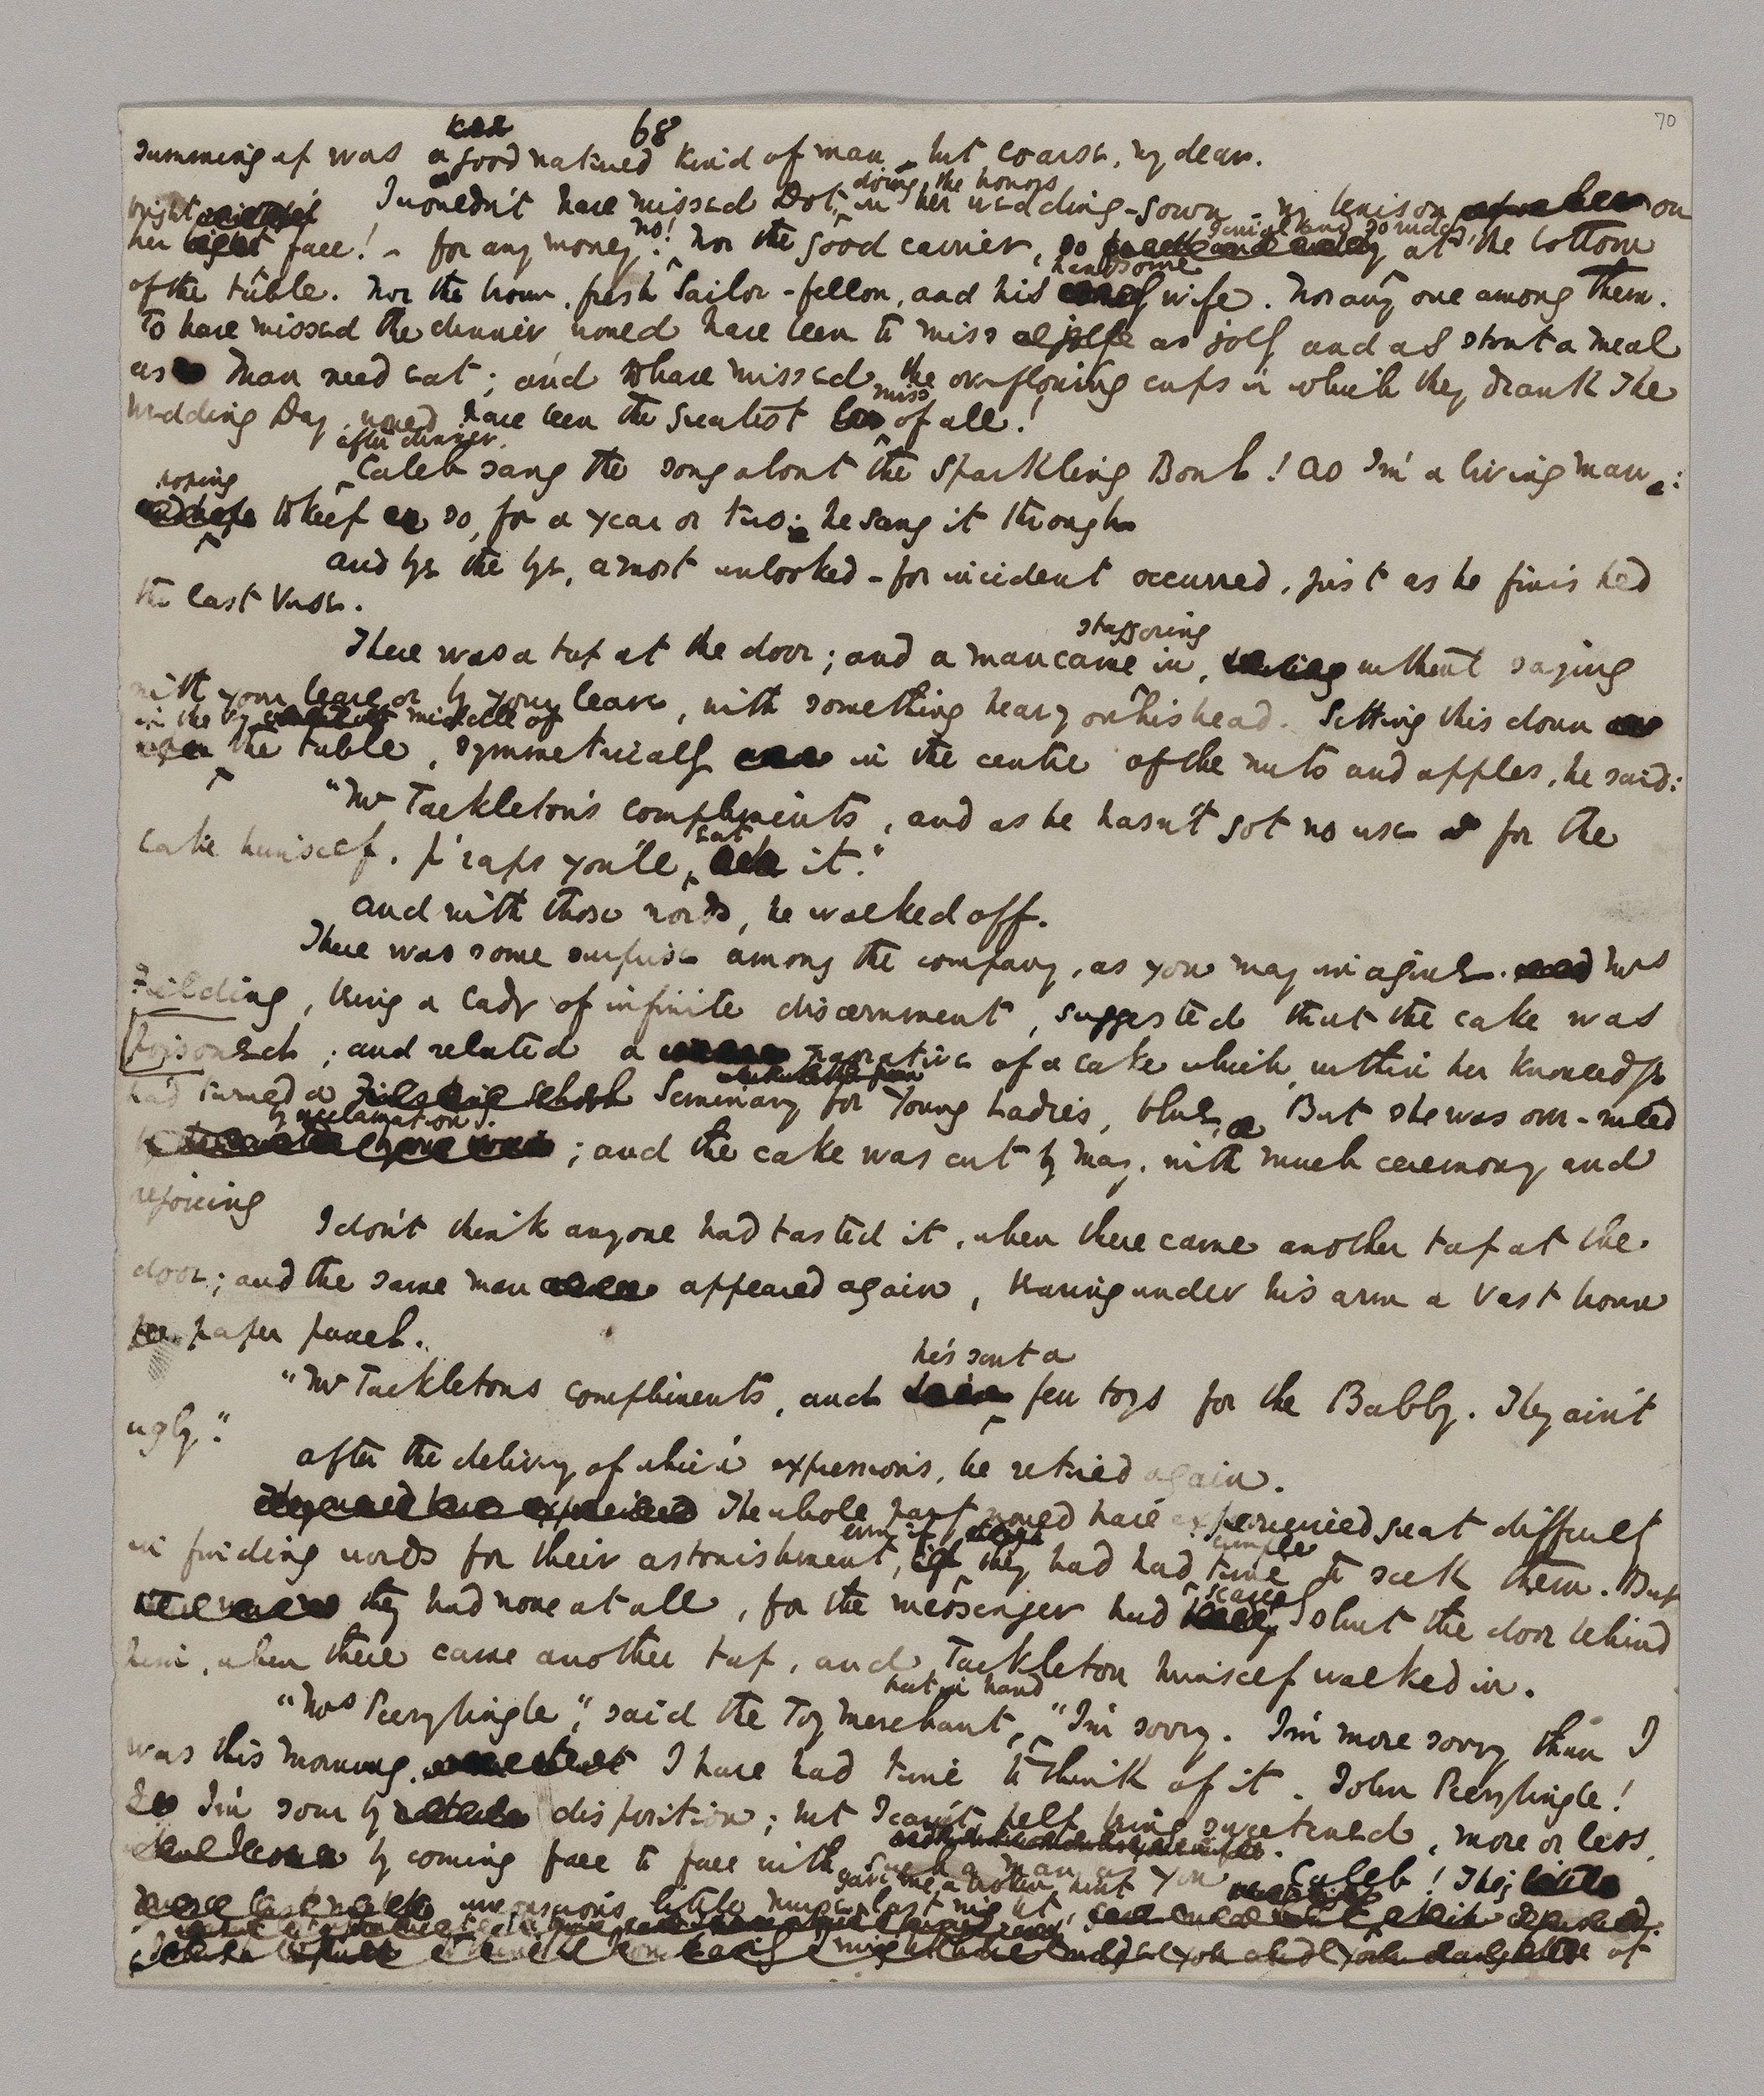 68
70
summing up was a good natured kind of man - but coarse, my dear.
I wouldn't have missed Dot, doing the honors in her wedding-gown, my benison on
her bright face! - for any money. No! nor the good carrier, so jovial and so ruddy, at the bottom
of the table. Nor the brown, fresh Sailor-fellow, and his handsome wife. Nor any one among them.
To have missed the dinner would have been to miss as jolly and as stout a meal
as man need eat; and to have missed the overflowing cups in which they drank The
Wedding Day, would have been the greatest miss of all!
after dinner, Caleb sang the song about the Sparkling Bowl! As I'm a living man:
hoping to keep so, for a year or two: he sang it through.
And bye the bye, a most unlooked-for incident occurred, just as he finished
the last verse.
There was a tap at the door; and a man came staggering in, without saying
with your leave or by your leave, with something heavy on his head. Setting this down
in the very middle of the table, symmetrically in the centre of the nuts and apples, he said:
"Mr Tackleton's compliments, and as he hasn't got no use for the
cake himself, p'raps you'll eat it."
And with those words, he walked off.
There was some surprise among the company, as you may imagine. Mrs
Fielding, being a lady of infinite discernment, suggested that the cake was
poisoned; and related a narrative of a cake which, within her knowledge
had turned a Seminary for Young Ladies, blue. But she was over-ruled
by acclamation; and the cake was cut by May, with much ceremony and
rejoicing
I don't think anyone had tasted it, when there came another tap at the
door; and the same man appeared again, having under his arm a vast brown
paper parcel.
"Mr Tackletons compliments, and he's sent a few toys for the Babby. They ain't
ugly."
After the delivery of which expressions, he retired again.
The whole party would have experienced great difficulty
in finding words for their astonishment, even if they had had ample time to seek them. But
they had none at all, for the messenger had scarcely shut the door behind
him, when there came another tap, and Tackleton himself walked in.
"Mrs Peerybingle", said the Toy merchant, hat in hand, "I'm sorry. I'm more sorry than I
was this morning. I have had time to think of it. John Peerybingle!
I'm sour by disposition; but I can't help being sweetened, more or less,
by coming face to face with such a man as you. Caleb! This
unconscious little nurse gave me a broken hint last night, of